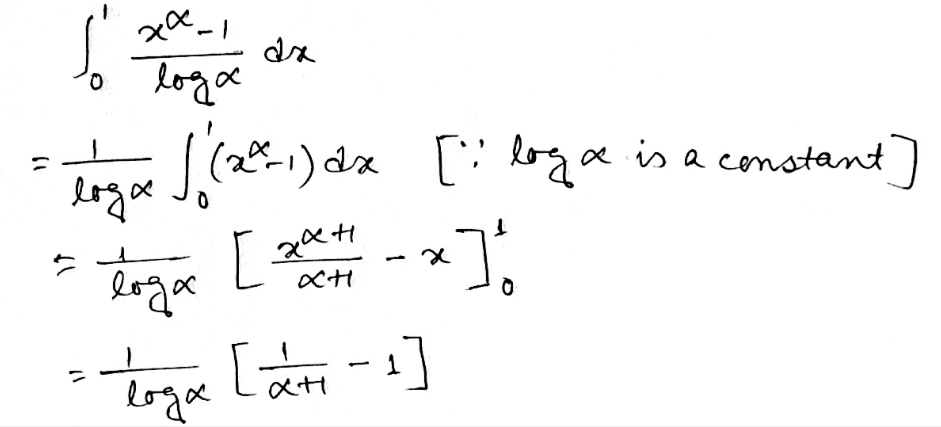 ∫₀¹ (x^α - 1)/(log α) dx
= 1/(log α) ∫₀¹ (x^α - 1) dx [∵ log α is a constant]
= 1/(log α) [x^(α+1)/(α+1) - x]₀¹
= 1/(log α) [1/(α+1) - 1]